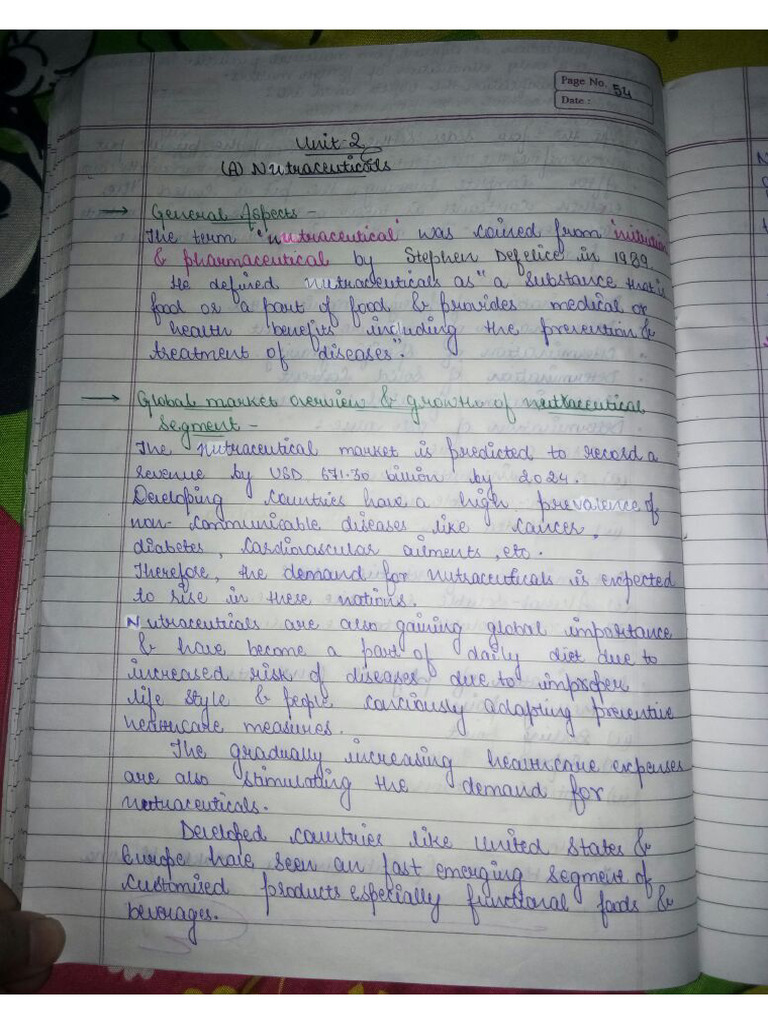 Page No. 54
Date :
Unit-2
(A) Nutraceuticals
→ General Aspects -
The term 'nutraceutical' was coined from 'nutrition
& pharmaceutical by Stephen Defelice in 1989.
He defined nutraceuticals as "a substance that is
food or a part of food & provides medical or
health benefits including the prevention &
treatment of diseases".
→ Global market overview & growth of nutraceutical
segment -
The nutraceutical market is predicted to record a
revenue by USD 671.30 billion by 2024.
Developing countries have a high prevalence of
non-communicable diseases like cancer,
diabetes, cardiovascular ailments, etc.
Therefore, the demand for nutraceuticals is expected
to rise in these nations.
Nutraceuticals are also gaining global importance
& have become a part of daily diet due to
increased risk of diseases due to improper
life style & people conciously adapting preventive
healthcare measures.
The gradually increasing healthcare expenses
are also stimulating the demand for
nutraceuticals.
Developed countries like United States &
Europe have seen an fast emerging segment of
customised products especially functional foods &
beverages.